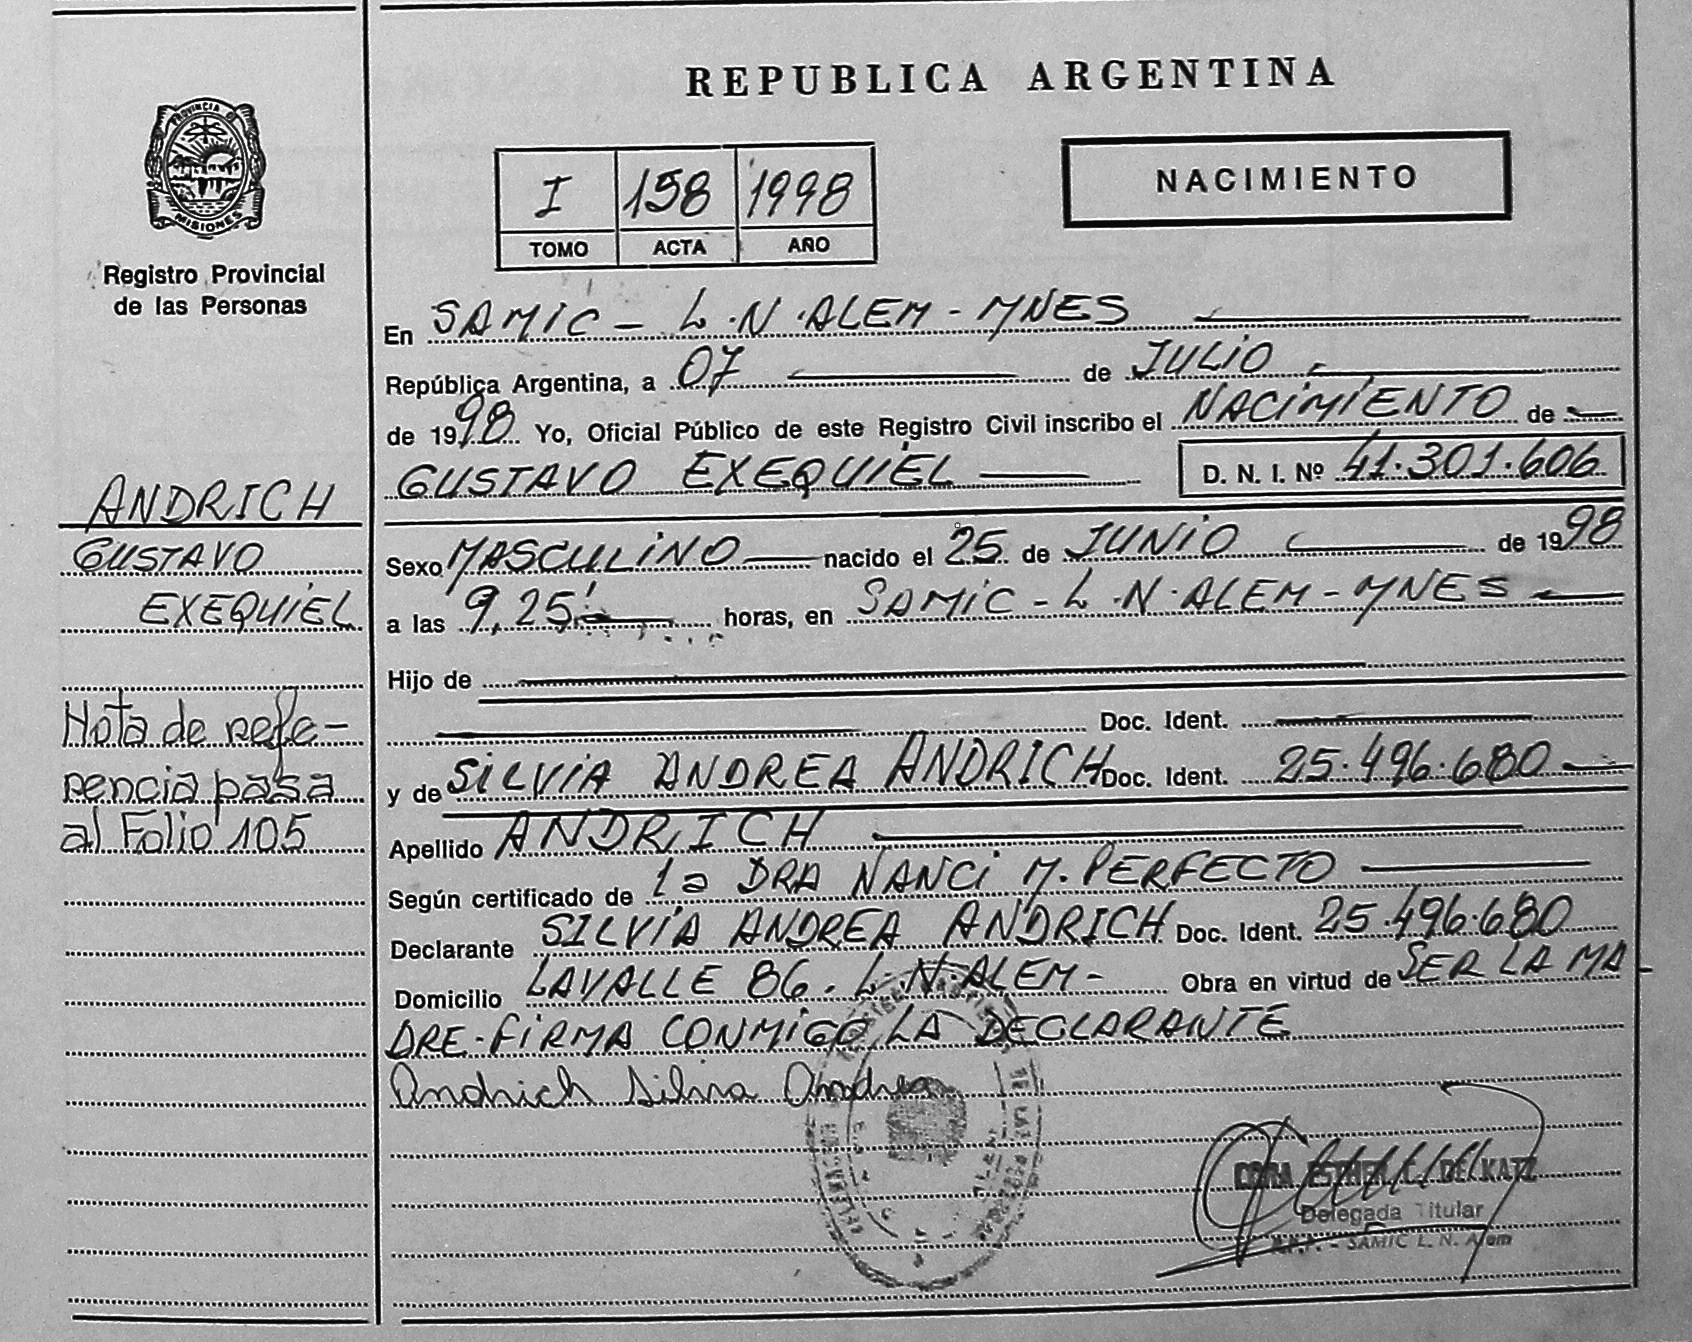 PROVINCIA DE
MISIONES
Registro Provincial
de las Personas
ANDRICH
GUSTAVO
EXEQUIEL
Nota de refe-
rencia pasa
al Folio 105
REPUBLICA ARGENTINA
I 158 1998
TOMO ACTA AÑO
NACIMIENTO
En SAMIC - L.N. ALEM - MNES
República Argentina, a 07 de JULIO
de 1998 Yo, Oficial Público de este Registro Civil inscribo el NACIMIENTO de
GUSTAVO EXEQUIEL D. N. I. Nº 41.301.606
Sexo MASCULINO nacido el 25 de JUNIO de 1998
a las 9,25' horas, en SAMIC - L.N. ALEM - MNES
Hijo de
Doc. Ident.
y de SILVIA ANDREA ANDRICH Doc. Ident. 25.496.680
Apellido ANDRICH
Según certificado de la DRA NANCI M. PERFECTO
Declarante SILVIA ANDREA ANDRICH Doc. Ident. 25.496.680
Domicilio LAVALLE 86. L.N. ALEM - Obra en virtud de SER LA MA-
DRE - FIRMA CONMIGO LA DECLARANTE
Andrich Silvia Andrea
ESTHER C. DE KATZ
Delegada Titular
SAMIC L. N. Alem